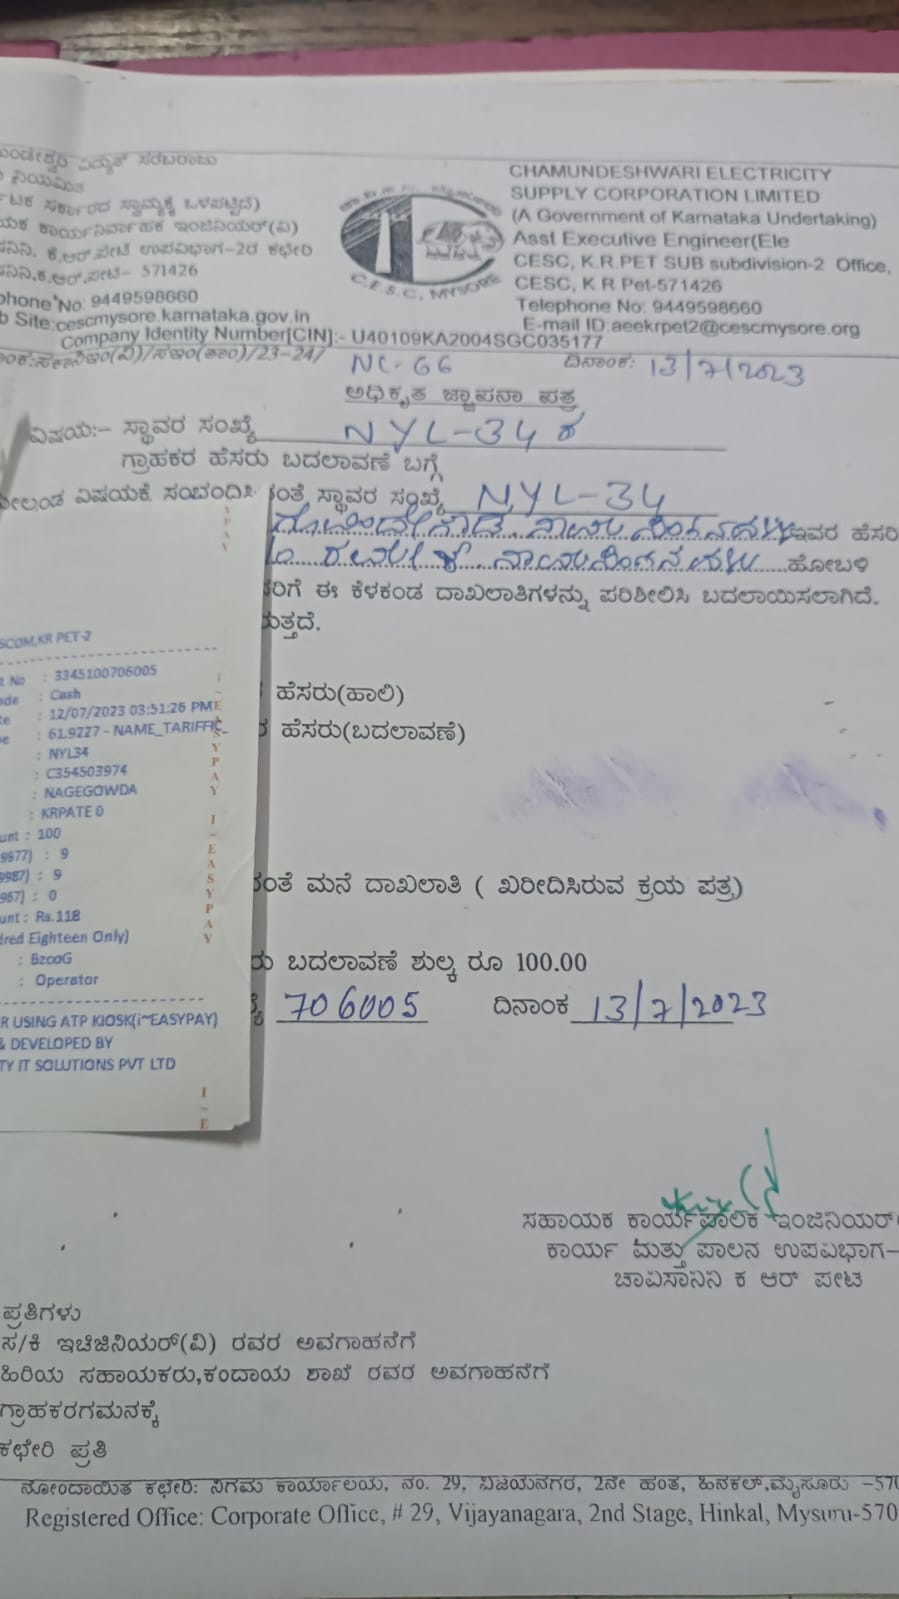 ವಿದ್ಯುತ್ ಸರಬರಾಜು
ನಿಯಮಿತ
ಸರ್ಕಾರದ ಸ್ವಾಮ್ಯಕ್ಕೆ ಒಳಪಟ್ಟಿದೆ)
ಕಾರ್ಯನಿರ್ವಾಹಕ ಇಂಜಿನಿಯರ್(ವಿ)
ಕೆ.ಆರ್.ಪೇಟೆ ಉಪವಿಭಾಗ-2ರ ಕಛೇರಿ
571426
phone No: 9449598660
Site:cescmysore.karnataka.gov.in
CHAMUNDESHWARI ELECTRICITY
SUPPLY CORPORATION LIMITED
(A Government of Karnataka Undertaking)
Asst Executive Engineer(Ele
CESC, K.R.PET SUB subdivision-2 Office,
CESC, K R Pet-571426
Telephone No: 9449598660
E-mail ID:aeekrpet2@cescmysore.org
C.E.S.C, MYSORE
Company Identity Number[CIN]:- U40109KA2004SGC035177
/23-24/ NC-66 ದಿನಾಂಕ: 13/7/2023
ಅಧಿಕೃತ ಜ್ಞಾಪನಾ ಪತ್ರ
ವಿಷಯ:- ಸ್ಥಾವರ ಸಂಖ್ಯೆ NYL-34 ಕ
ಗ್ರಾಹಕರ ಹೆಸರು ಬದಲಾವಣೆ ಬಗ್ಗೆ
ವಿಷಯಕೆ ಸಂಬಂದಿಸಿ ಸ್ಥಾವರ ಸಂಖ್ಯೆ NYL-34
ಇವರ ಹೆಸರಿ
ಹೋಬಳಿ
ಈ ಕೆಳಕಂಡ ದಾಖಲಾತಿಗಳನ್ನು ಪರಿಶೀಲಿಸಿ ಬದಲಾಯಿಸಲಾಗಿದೆ.
ಹೆಸರು(ಹಾಲಿ)
ಹೆಸರು(ಬದಲಾವಣೆ)
ಮನೆ ದಾಖಲಾತಿ ( ಖರೀದಿಸಿರುವ ಕ್ರಯ ಪತ್ರ)
ಬದಲಾವಣೆ ಶುಲ್ಕ ರೂ 100.00
706005 ದಿನಾಂಕ 13/7/2023
SCOM,KR PET-2
t No : 3345100706005
: Cash
: 12/07/2023 03:51:26 PM
: 61.9227 - NAME_TARIFF
: NYL34
: C354503974
: NAGEGOWDA
: KRPATE 0
unt : 100
9977) : 9
9987) : 9
967) : 0
unt : Rs.118
dred Eighteen Only)
: BzooG
: Operator
R USING ATP KIOSK(i~EASYPAY)
& DEVELOPED BY
TY IT SOLUTIONS PVT LTD
ಸಹಾಯಕ ಕಾರ್ಯಪಾಲಕ ಇಂಜಿನಿಯರ್
ಕಾರ್ಯ ಮತ್ತು ಪಾಲನ ಉಪವಿಭಾಗ-
ಚಾವಿಸಾನಿನಿ ಕ ಆರ್ ಪೇಟ
ಪ್ರತಿಗಳು
ಸ/ಕಿ ಇಚಿಜಿನಿಯರ್(ವಿ) ರವರ ಅವಗಾಹನೆಗೆ
ಹಿರಿಯ ಸಹಾಯಕರು,ಕಂದಾಯ ಶಾಖೆ ರವರ ಅವಗಾಹನೆಗೆ
ಗ್ರಾಹಕರಗಮನಕ್ಕೆ
ಕಛೇರಿ ಪ್ರತಿ
ನೋಂದಾಯಿತ ಕಛೇರಿ: ನಿಗಮ ಕಾರ್ಯಾಲಯ, ನಂ. 29, ವಿಜಯನಗರ, 2ನೇ ಹಂತ, ಹಿನಕಲ್,ಮೈಸೂರು -570
Registered Office: Corporate Office, # 29, Vijayanagara, 2nd Stage, Hinkal, Mysuru-570